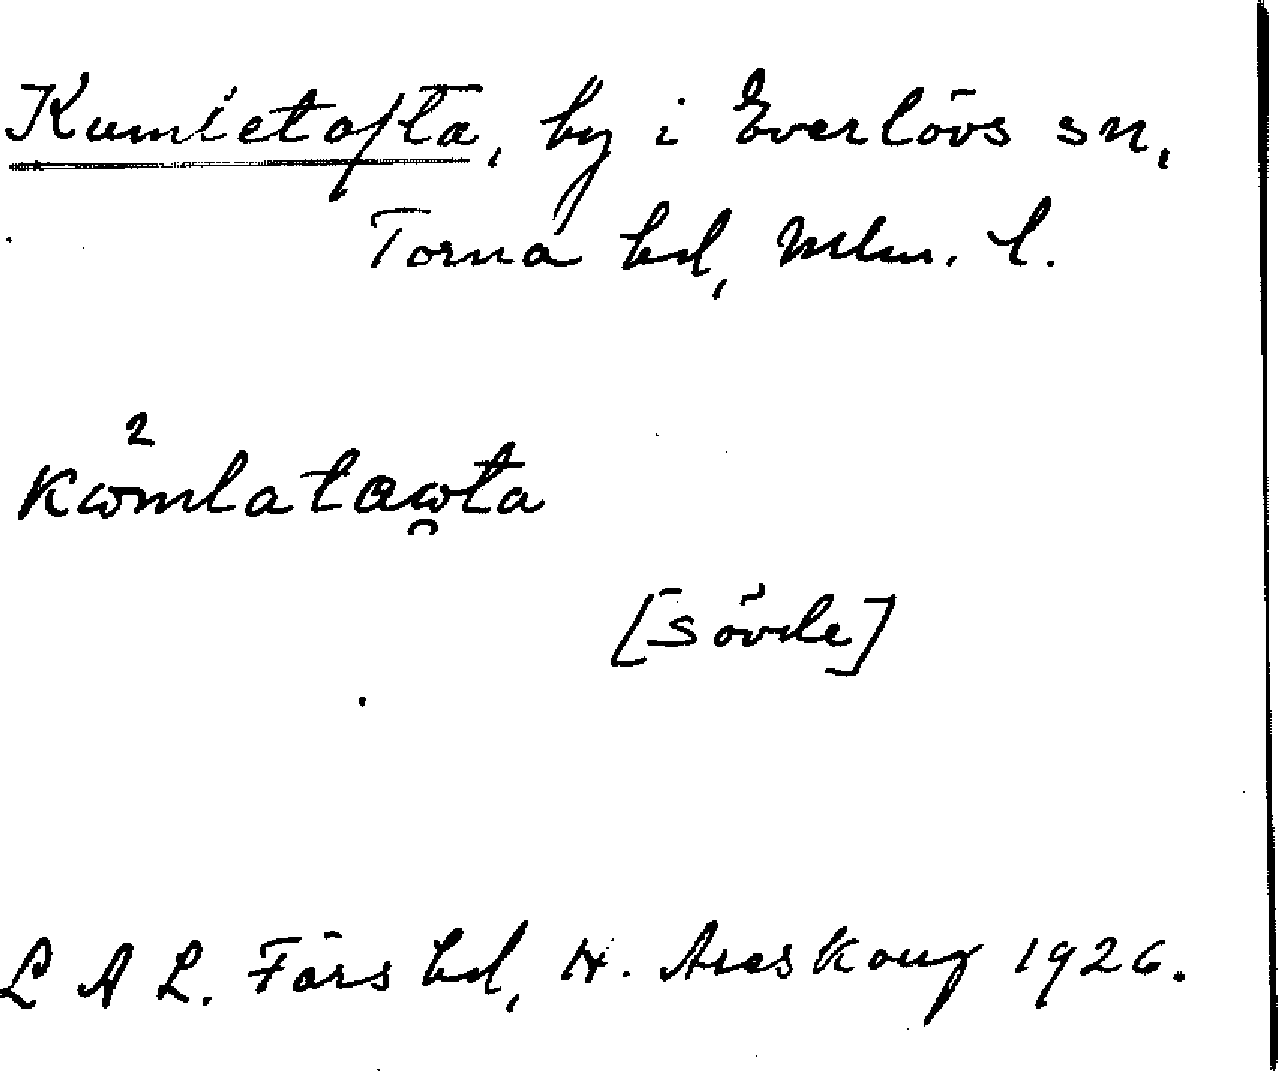 Kumletofta, by i Everlövs sn,
Torna hd, Mlm. l.
2
kωmlatαω̯ta
[Sövde]
L A L. Färs hd, H. Areskoug 1926.